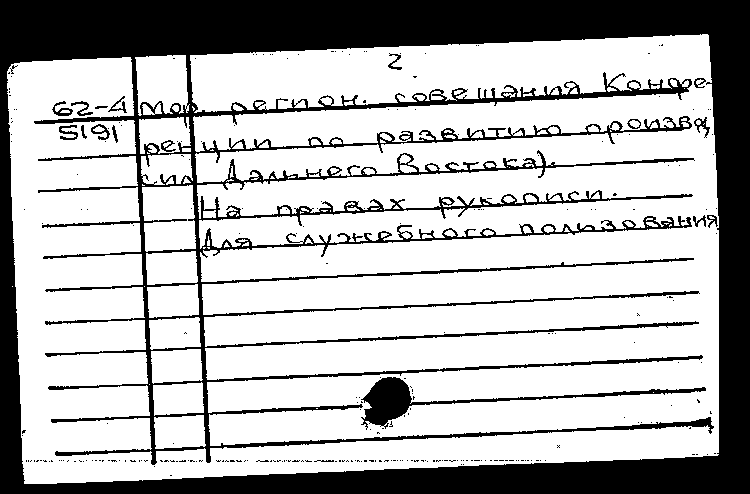 2
62-4 мор. регион. совещания Конфе-
5191 ренции по развитию произв.
сил Дальнего Востока).
На правах рукописи.
Для служебного пользования